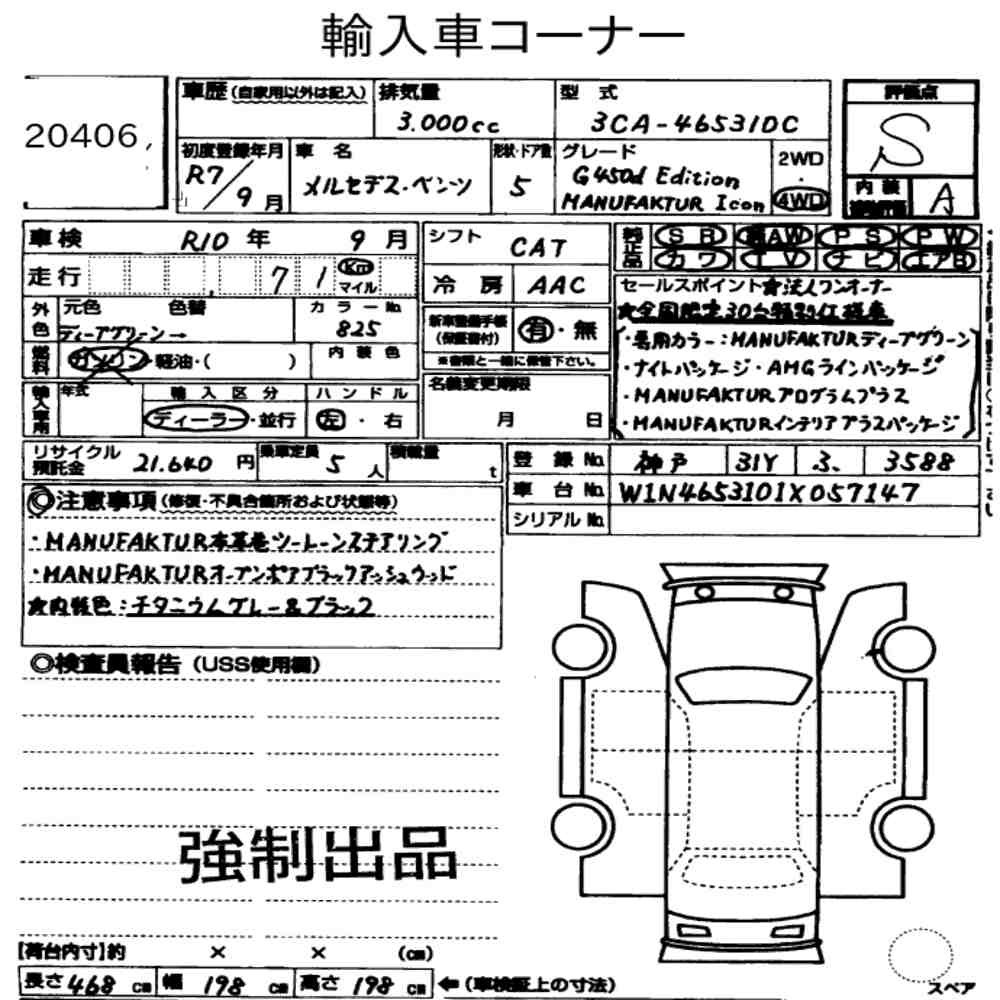 輸入車コーナー
20406,
車歴(自家用以外は記入) 排気量 型式 評価点
3.000cc 3CA-46531DC S
初度登録年月 車名 形状・ドア数 グレード 2WD
R7/9月 メルセデス・ベンツ 5 G450d Edition
MANUFAKTUR Icon 4WD
内装 A
車検 R10年 9月 シフト CAT 純正品 SR 革AW PS PW
走行 71 km マイル 冷房 AAC カワ TV ナビ エアB
外色 元色 色替 カラーNo. 825
ディープグリーン→
新車整備手帳(保証書付) 有・無
※書類と一緒に保管下さい。
燃料 ガソリン・軽油・( ) 内装色
輸入車用 年式 輸入区分 ハンドル
ディーラー・並行 左・右
名義変更期限
月 日
セールスポイント ★法人ワンオーナー
★全国限定30台特別仕様車
・専用カラー:MANUFAKTURディープグリーン
・ナイトパッケージ・AMGラインパッケージ
・MANUFAKTURプログラムプラス
・MANUFAKTURインテリアプラスパッケージ
リサイクル預託金 21.640円 乗車定員 5人 積載量 t
登録No. 神戸 31Y 3. 3588
車台No. W1N4653101X057147
シリアルNo.
◎注意事項(修復・不具合箇所および状態等)
・MANUFAKTUR本革巻ツートーンステアリング
・MANUFAKTURオープンポアブラックアッシュウッド
★内装色:チタニウムグレー&ブラック
◎検査員報告(USS使用欄)
強制出品
【荷台内寸】約 × × (cm)
長さ468cm 幅198cm 高さ198cm ←(車検証上の寸法)
スペア